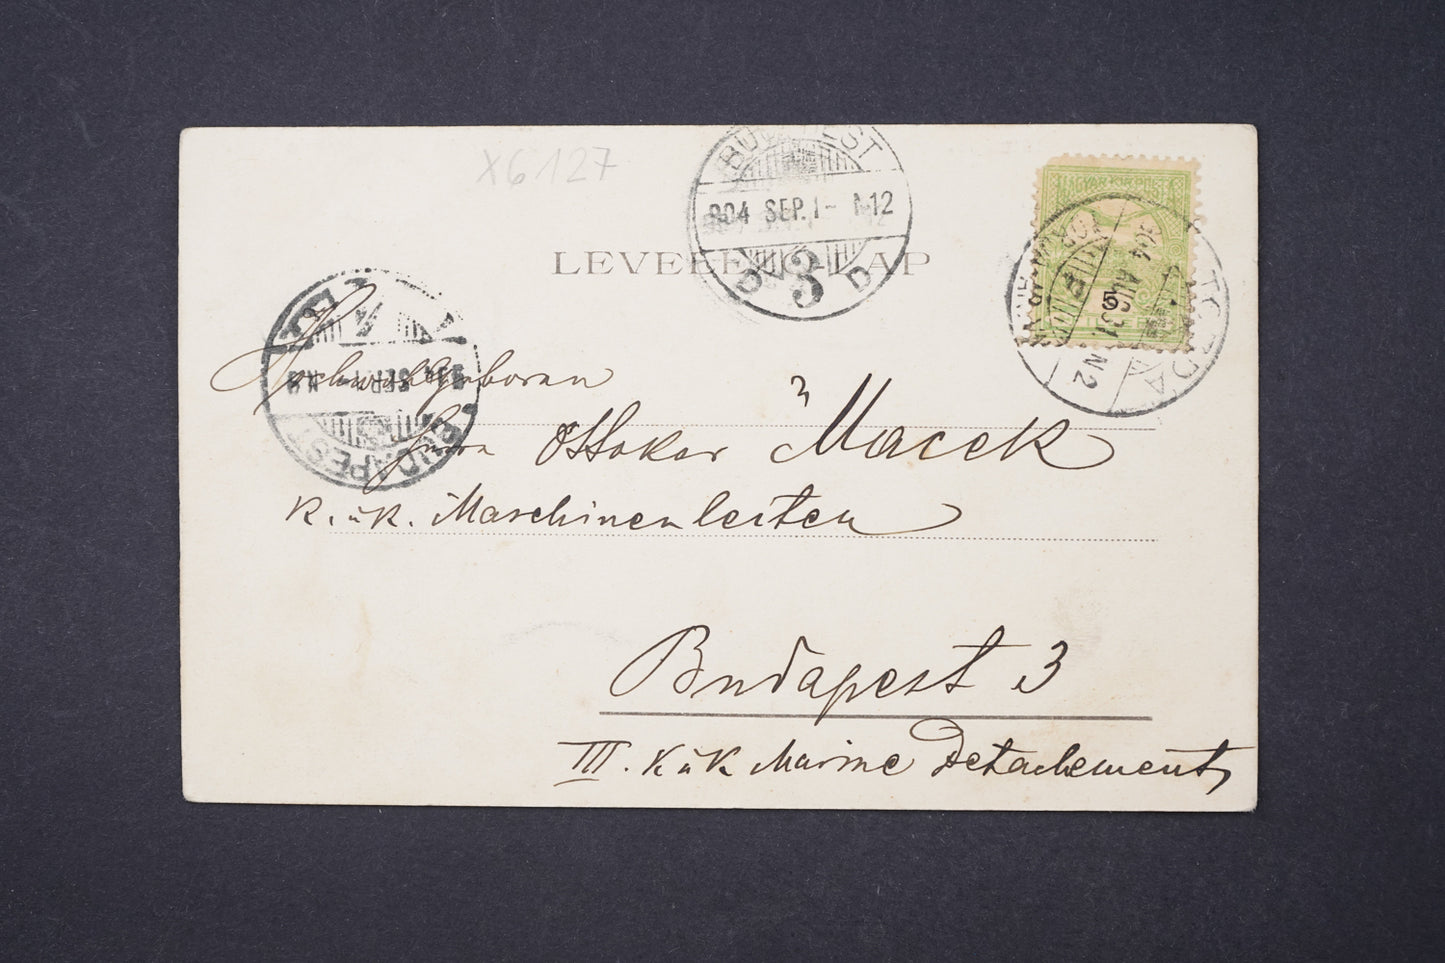 X6127
BUDAPEST
904 SEP. 1- M12
D 3 D
LEVELEZŐ-LAP
MAGYAR KIR. POSTA
5
904 AUG 31 N2
TORDA
904 SEP. 1
BUDAPEST
Hochwohlgeboren
Herrn Ottokar Macek
K. u K. Maschinenleiter
Budapest 3
III. K u K Marine Detachement